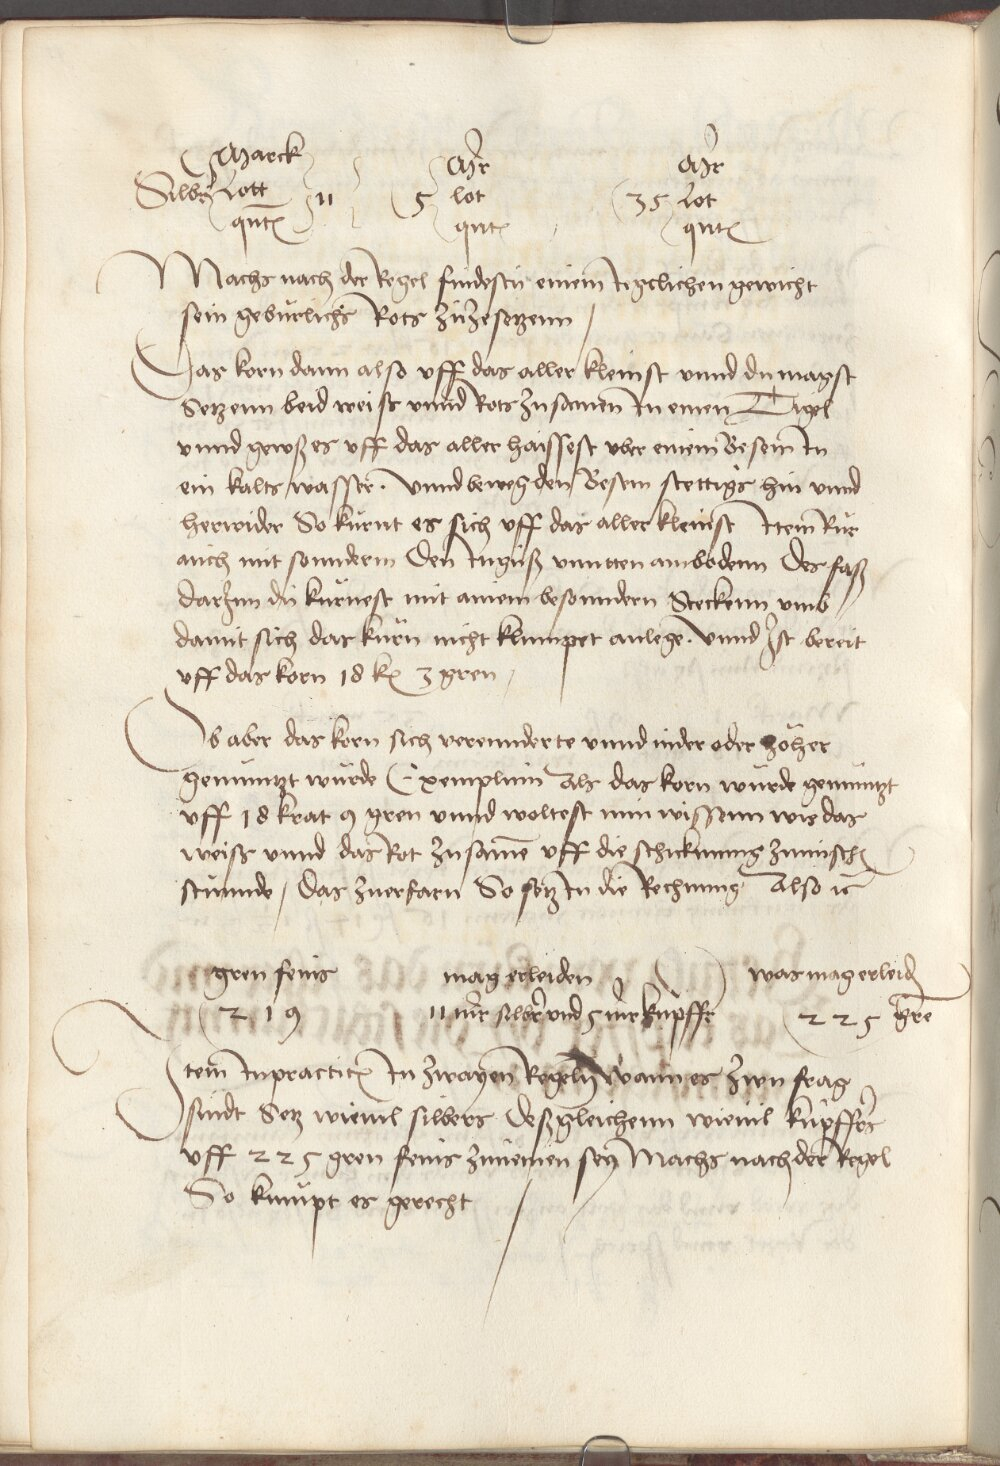 Marck Mr Mr
Silbr Lott 11 5 lot 35 Lot
qnt qnt qnt
Machs nach der Regel findestu einem yglichen gewicht
sein geburlichs Rots zuzesetzenn /
Das korn dann also vff das aller kleinst vnnd du magst
Setzenn beid weiss vnnd Rots zusamen In einen Tigel
vnnd gewß es vff das aller haissest vber einem Besem In
ein kalts wasser. Vnnd beweg den Besem stettigs hin vnnd
herwider So kurnt es sich vff das aller kleinst Item Rur
auch mit sonnderm Den Inguß vnntten am bodenn Des faß
darInn du kurnest mit ainem besonndern Steckenn vmb /
damit sich das kurn nicht klumpet anlege. Vnnd Ist bereit
vff das korn 18 k 3 gren /
Ob aber das korn sich verennderte vnnd nider oder hoher
gemuntzt wurde Exemplum Als das korn wurde gemuntzt
vff 18 krat 9 gren vnnd woltest nun wissenn wie das
weiss vnnd das Rot zusame vff die schickunng zumisch
stunnde / Das zuerfarn So setz In die Rechnung Also
gren fenis mag erleiden was mag erleid
219 11 mr silbr vnd 5 mr kupffr 225 gre
Item In practic In zwayen Regeln Wann es zwu frag
sindt Setz wieuil silbers Deßgleichenn wieuil kupffrs
vff 225 gren fenis zunemen sey Machs nach der Regel
So kumpt es gerecht